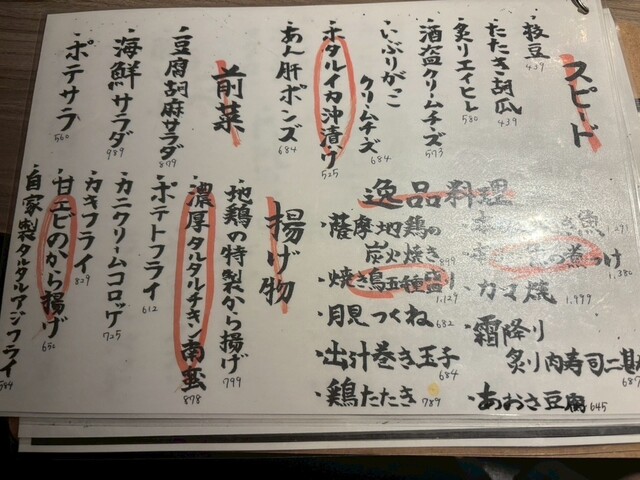 スピード
・枝豆 439
・たたき胡瓜 439
・炙りエイヒレ 580
・酒盗クリームチーズ 573
・いぶりがっこ
クリームチーズ 684
・ホタルイカ沖漬け 525
・あん肝ポンズ 684
前菜
・豆腐胡麻サラダ 879
・海鮮サラダ 989
・ポテサラ 560
逸品料理
・薩摩地鶏の
炭火焼き 899
・焼き鳥五種盛り 1,129
・月見つくね 682
・出汁巻き玉子 684
・鶏たたき 789
煮つけ
・カマ焼 1,999
・霜降り
炙り肉寿司二貫 687
・あおさ豆腐 645
揚げ物
・地鶏の特製から揚げ 799
・濃厚タルタルチキン南蛮 878
・ポテトフライ 612
・カニクリームコロッケ 725
・カキフライ 829
・甘エビのから揚げ 650
・自家製タルタルアジフライ 584